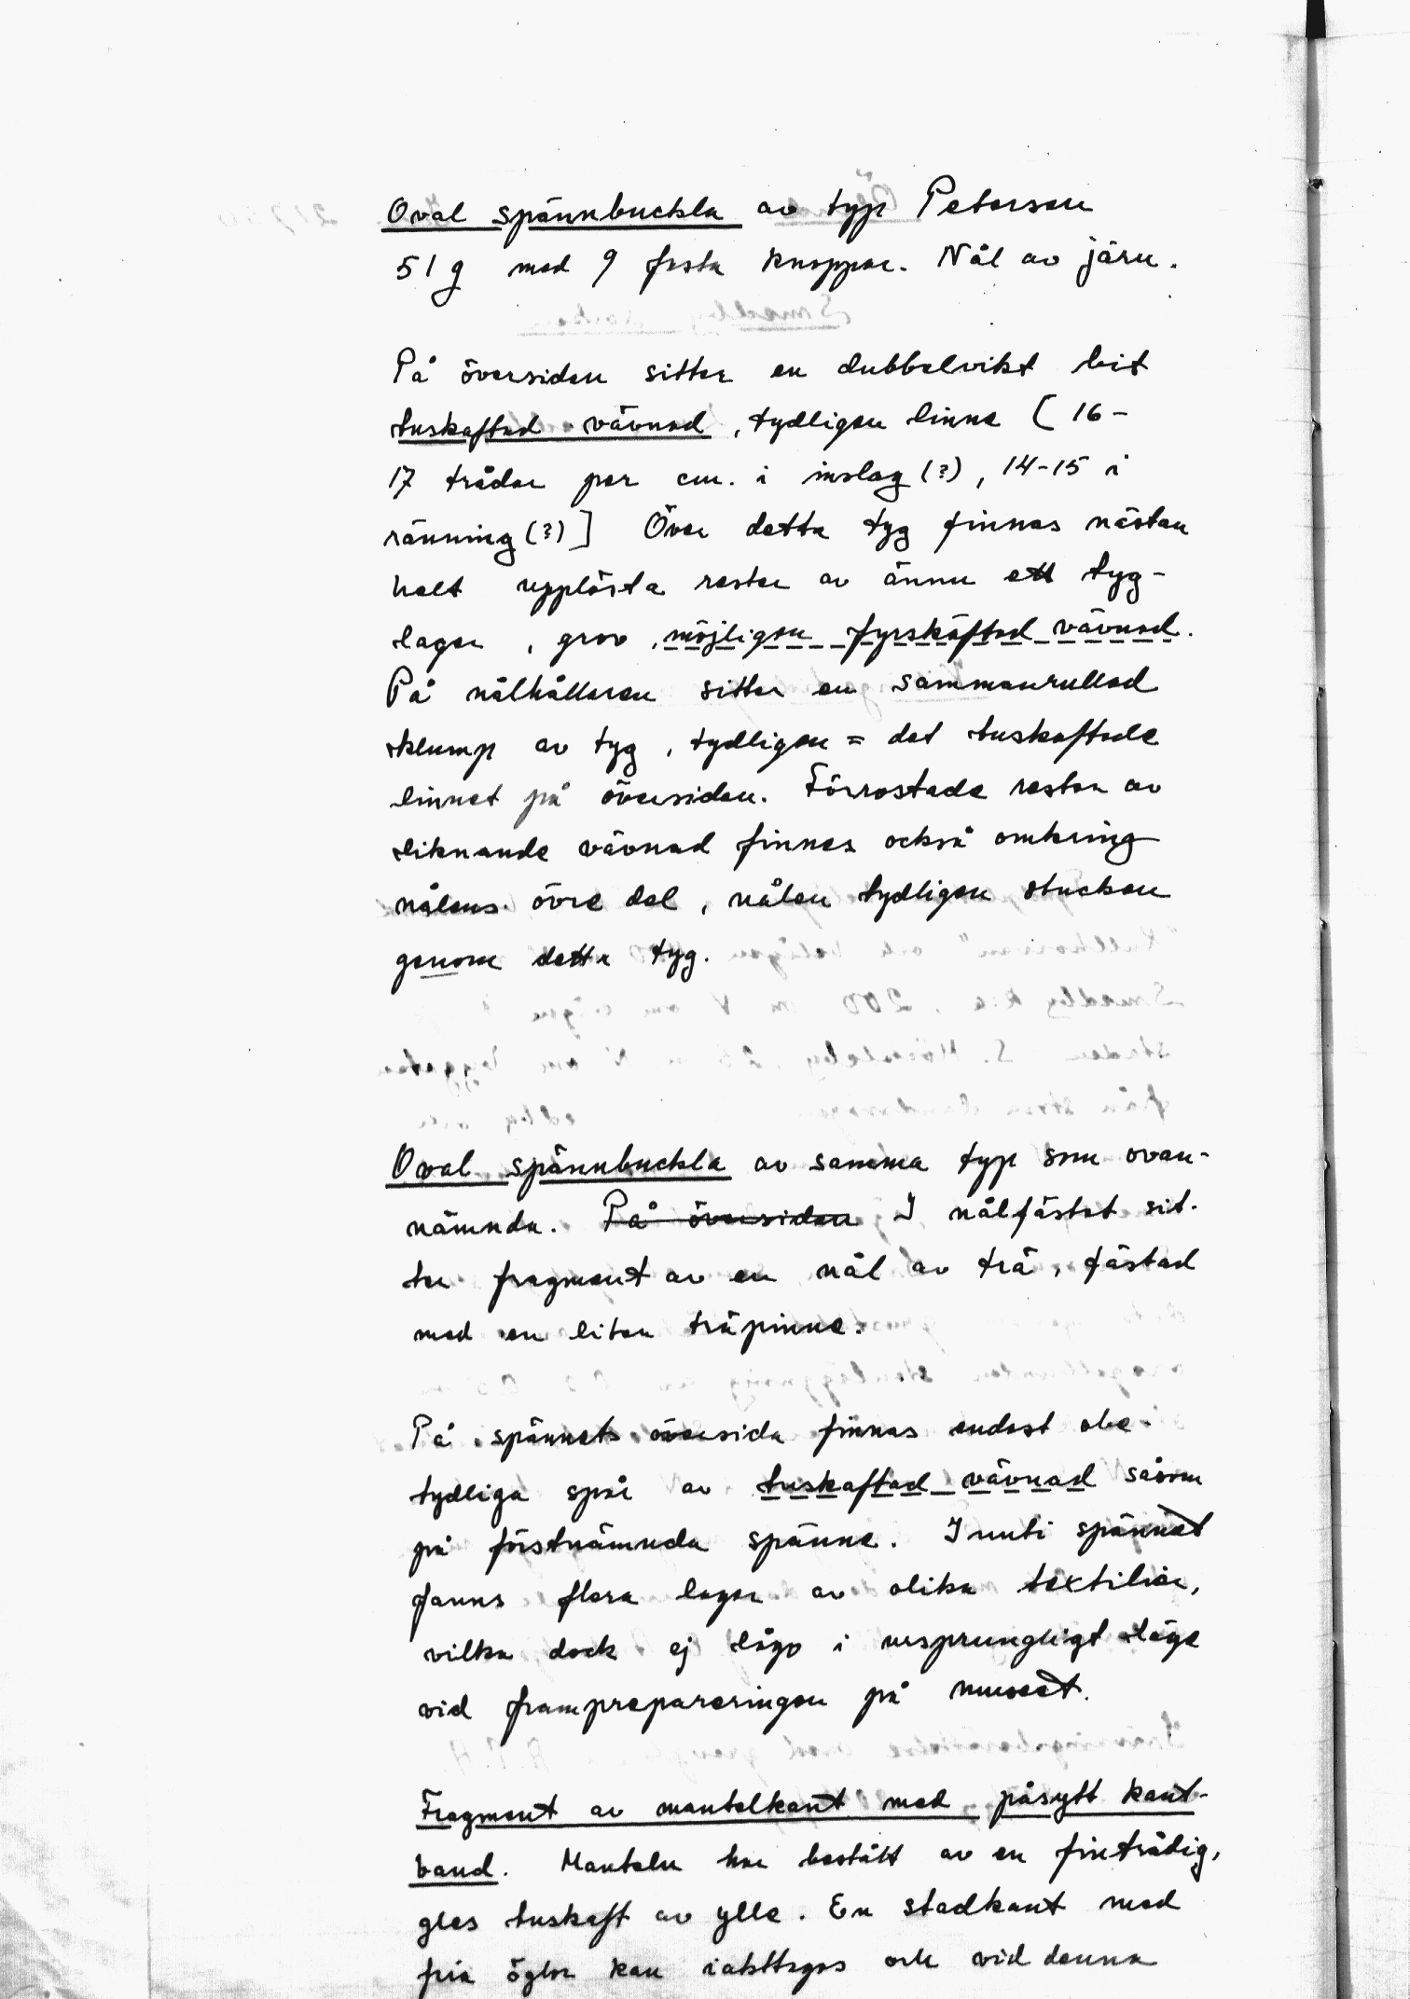 Oval spännbuckla av typ Petersen
51g med 9 fasta knoppar. Nål av järn.
På översidan sitter en dubbelvikt bit
tuskaftad vävnad, tydligen linne [16-
17 trådar per cm. i inslag (?), 14-15 i
ränning (?)] Över detta tyg finnes nästan
helt upplösta rester av ännu ett tyg-
lager, grov, möjligen fyrskäftad vävnad.
På nålhållaren sitter en sammanrullad
klump av tyg, tydligen = det tuskaftade
linnet på översidan. Förrostade rester av
liknande vävnad finnes också omkring
nålens övre del, nålen tydligen stucken
genom detta tyg.
Oval spännbuckla av samma typ som ovan-
nämnda. På översidan I nålfästet sit-
ter fragment av en nål av trä, fästad
med en liten träpinne.
På spännets översida finnas endast obe-
tydliga spår av tuskaftad vävnad såsom
på förstnämnda spänne. Inuti spännet
fanns flera lager av olika textilier,
vilka dock ej lågo i ursprungligt läge
vid frampreparering​en på museet.
Fragment av mantelkant med påsytt kant-
band. Manteln har bestått av en fintrådig,
gles tuskaft av ylle. En stadkant med
fria öglor kan iakttagas och vid denna